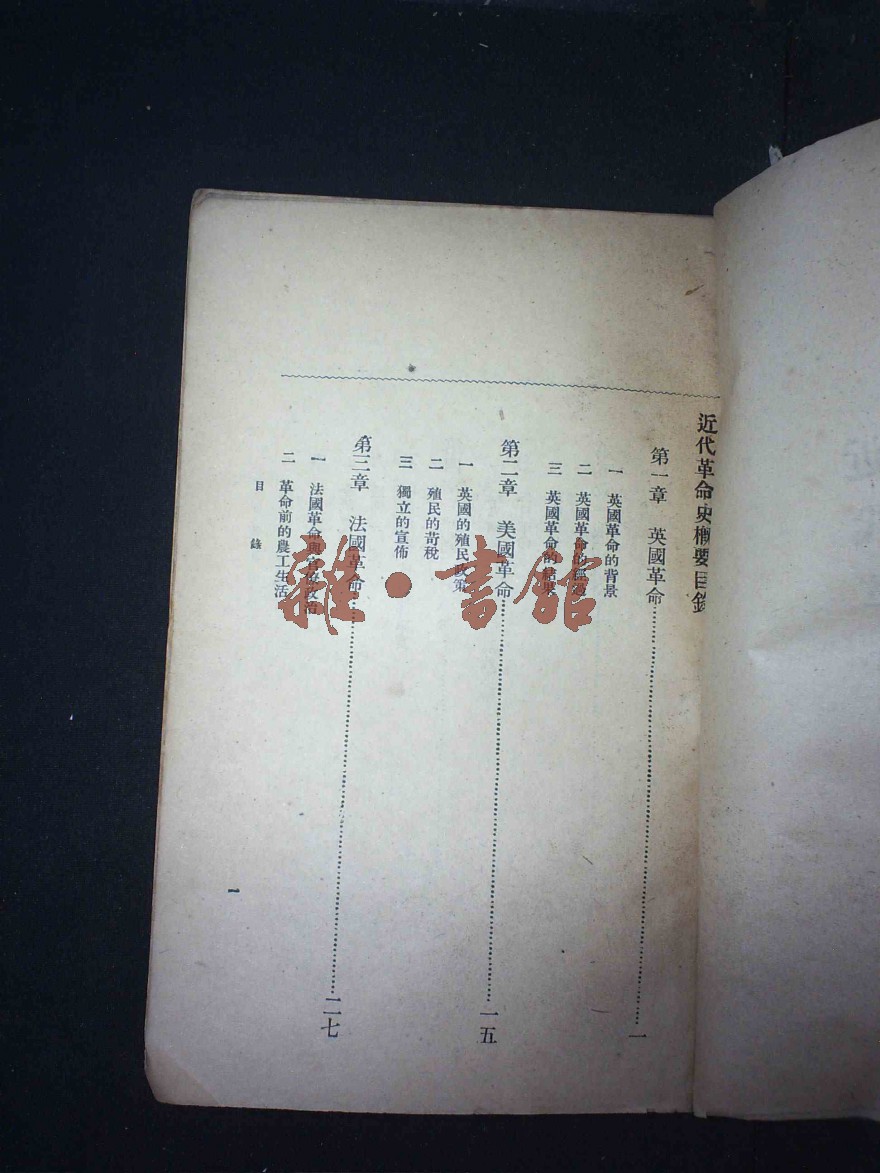 近代革命史概要目錄
第一章 英國革命……一
一 英國革命的背景
二 英國革命的經過
三 英國革命的結果
第二章 美國革命……一五
一 英國的殖民政策
二 殖民的苛稅
三 獨立的宣佈
第三章 法國革命……二七
一 法國革命與
二 革命前的農工生活
目錄
一
雜·書館